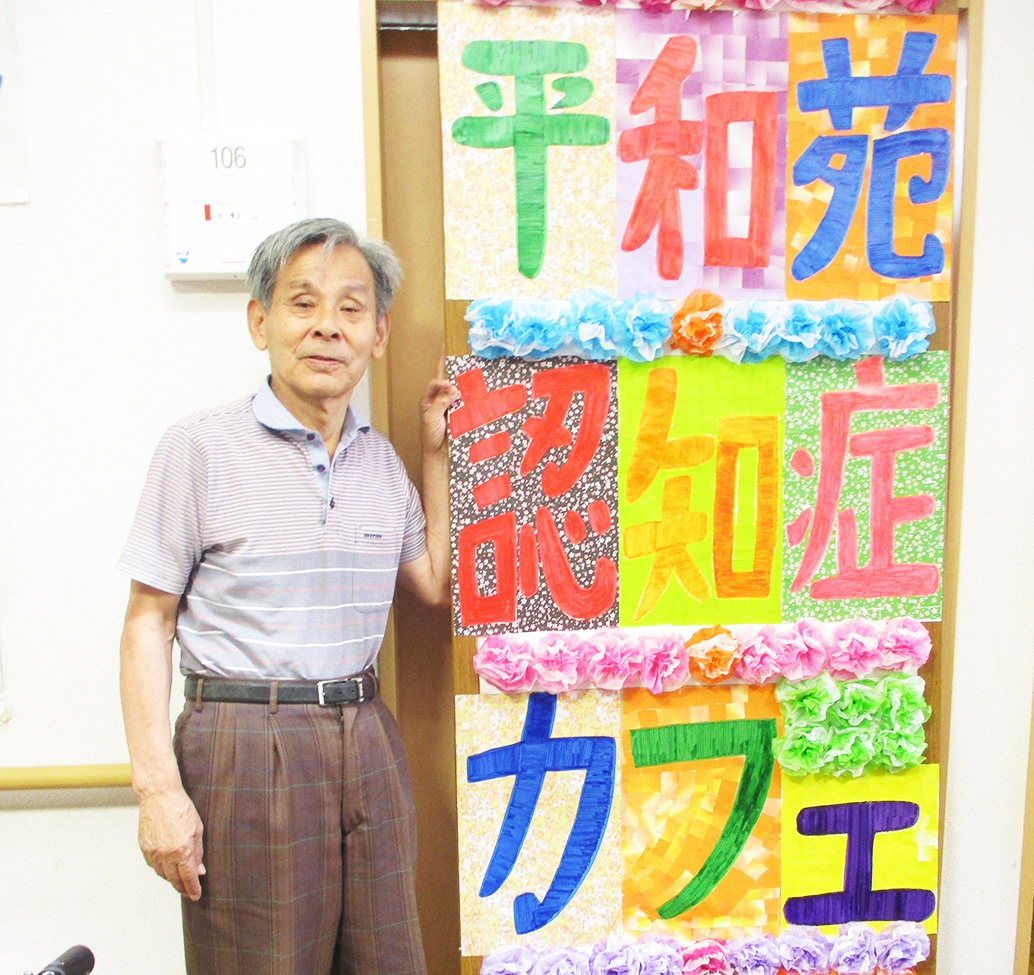 106
平和苑
認知症
カフェ